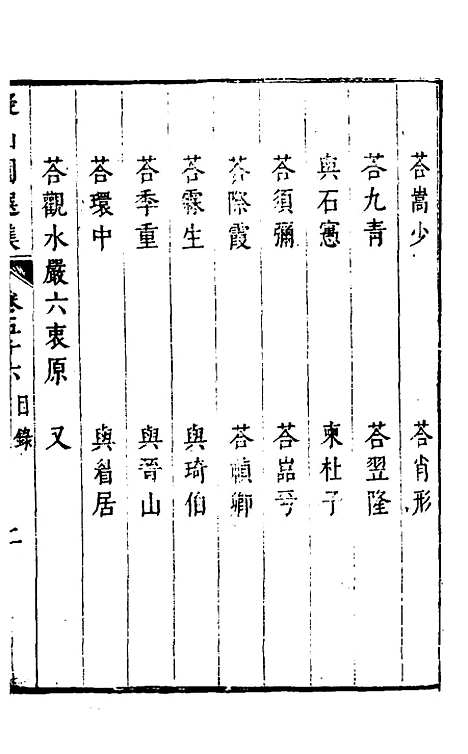 荅嵩少　荅肖形
荅九青　荅翌隆
與石窻　柬杜子
荅須彌　荅嵓𠔃
荅際霞　荅幀卿
荅霖生　與琦伯
荅季重　與晉山
荅環中　與眉居
荅觀水嚴六衷原　又
山園選集　卷五十六目錄　二